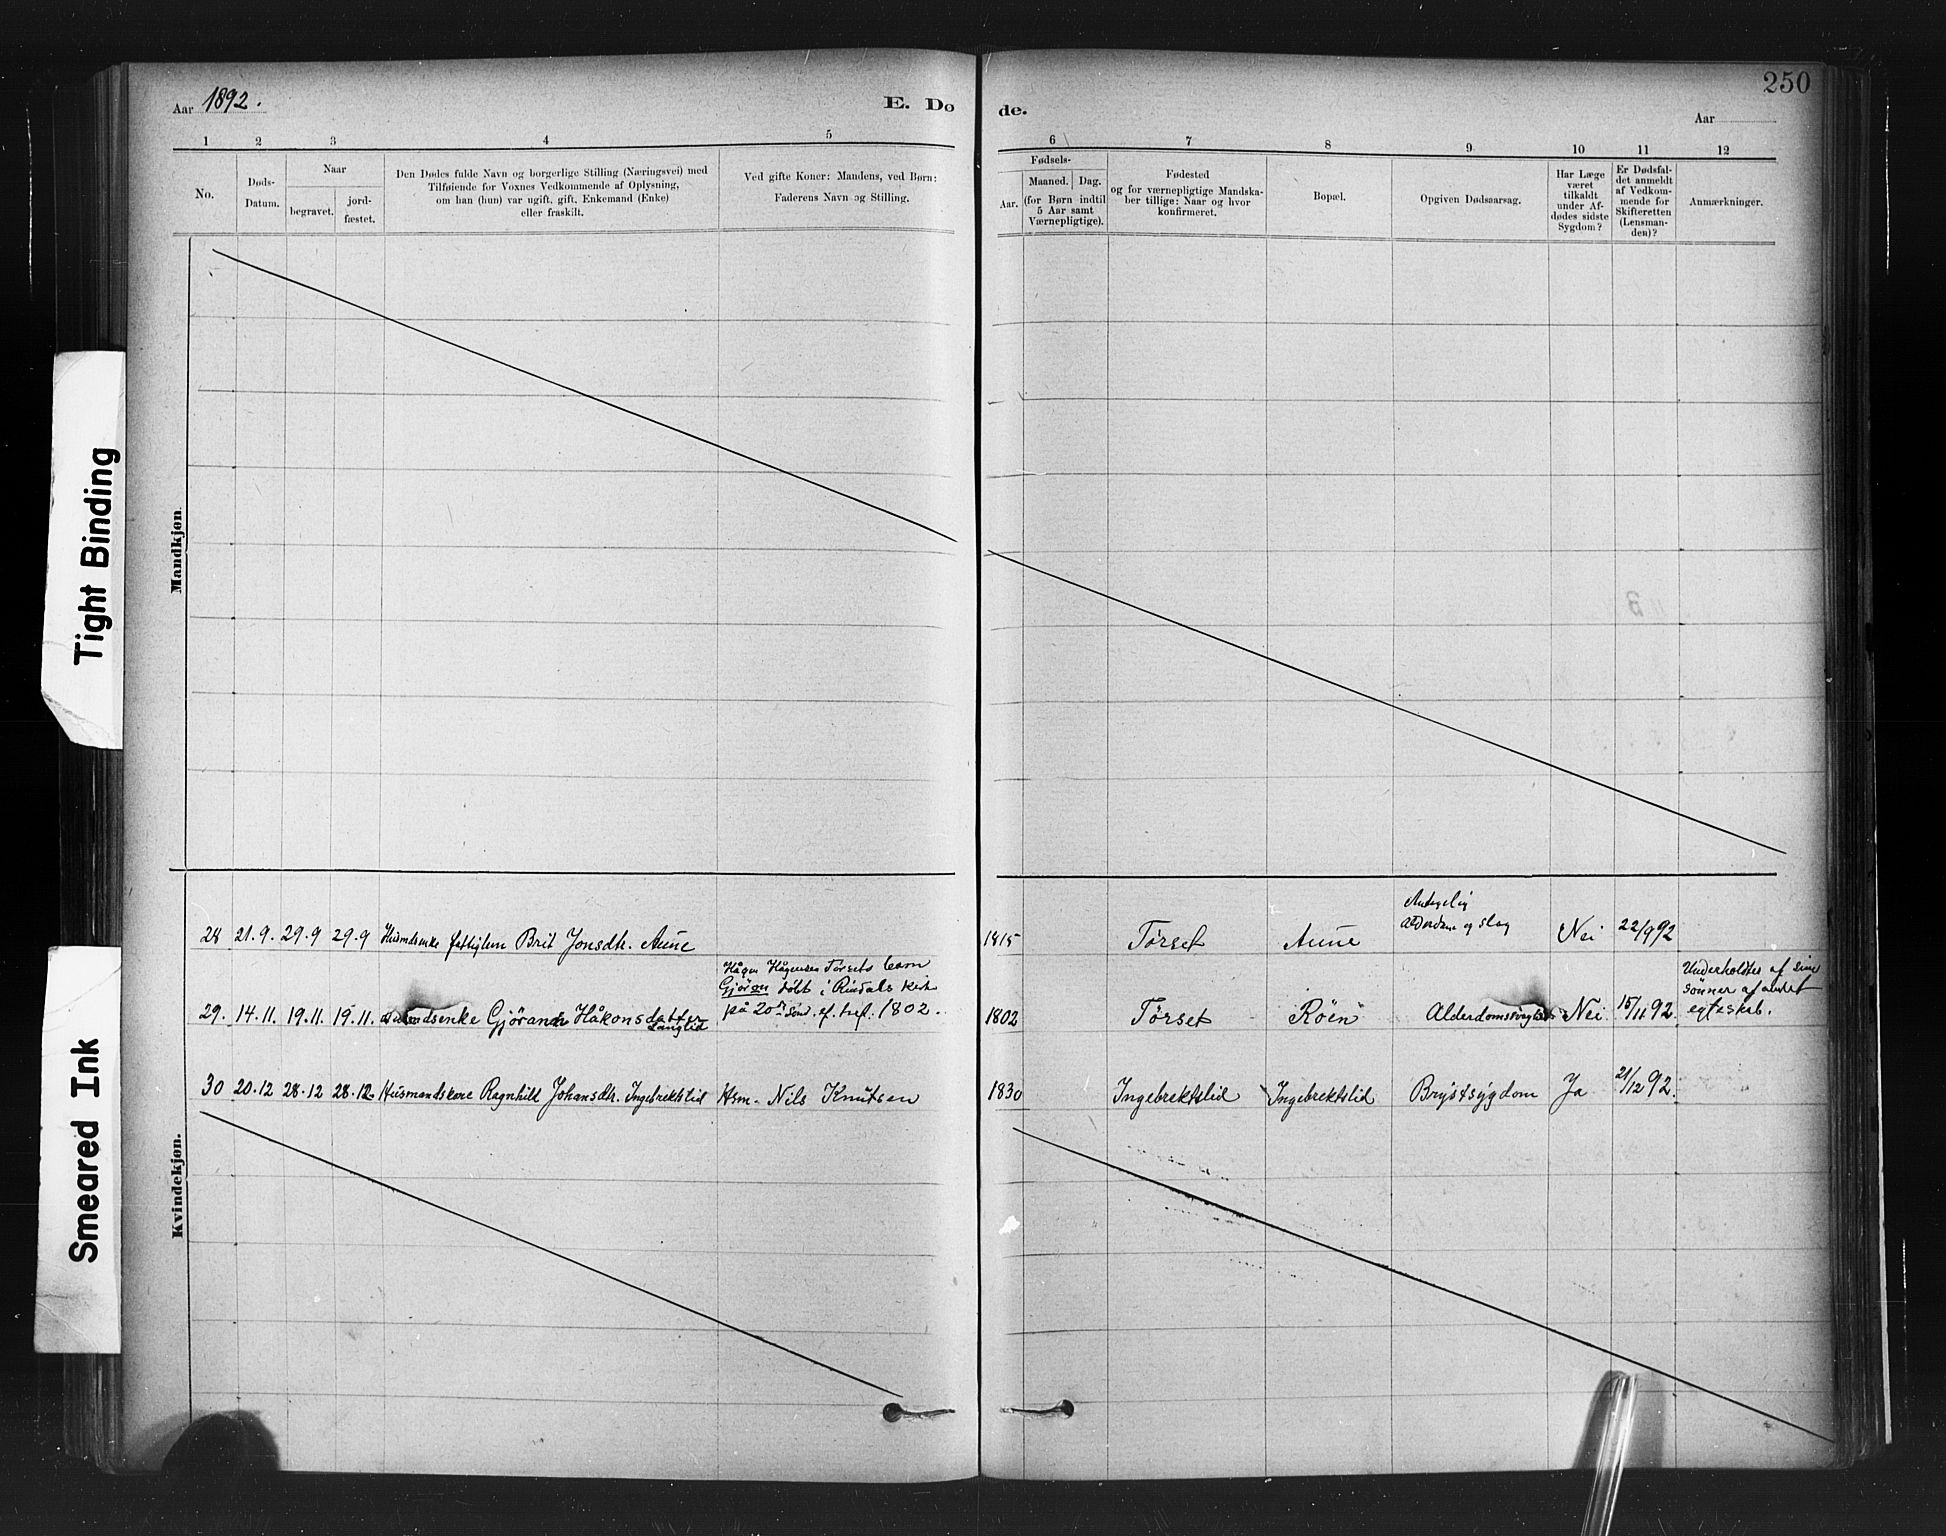 250
Aar 1892.
E. Dø
de.
Aar
1 2 3 4 5
6 7 8 9 10 11 12
No.
Døds-
Datum.
Naar
begravet.
jord-
fæstet.
Den Dødes fulde Navn og borgerlige Stilling (Næringsvei) med
Tilføiende for Voxnes Vedkommende af Oplysning,
om han (hun) var ugift, gift, Enkemand (Enke)
eller fraskilt.
Ved gifte Koner: Mandens, ved Børn:
Faderens Navn og Stilling.
Fødsels-
Aar.
Maaned. Dag.
(for Børn indtil
5 Aar samt
Værnepligtige).
Fødested
og for værnepligtige Mandska-
ber tillige: Naar og hvor
konfirmeret.
Bopæl.
Opgiven Dødsaarsag.
Har Læge
været
tilkaldt
under Af-
dødes sidste
Sygdom?
Er Dødsfal-
det anmeldt
af Vedkom-
mende for
Skifteretten
(Lensman-
den)?
Anmærkninger.
Mandkjøn.
Tight Binding
Antagelig
28 21.9. 29.9 29.9 Husmdsenke fattiglem Brit Jonsdtr. Aune 1815 Tørset Aune Alderdom og slag Nei 22/9 92
Hågen Hågensen Tørsets barn
Gjøron døbt i Rindals Kirke
på 20de Sønd. ef. tref. 1802.
29. 14.11. 19.11. 19.11. Husmandsenke Gjøran Håkonsdatter
Langlid
1802 Tørset Røen Alderdomssvaghed Nei 15/11 92.
Underholdtes af sine
sønner af andet
egteskab.
30 20.12 28.12 28.12. Husmandskone Ragnhild Johansdtr. Ingebrektslid Hsm. Nils Knutsen 1830 Ingebrektslid Ingebrektslid Brystsygdom Ja 21/12 92.
Kvindekjøn.
Smeared Ink